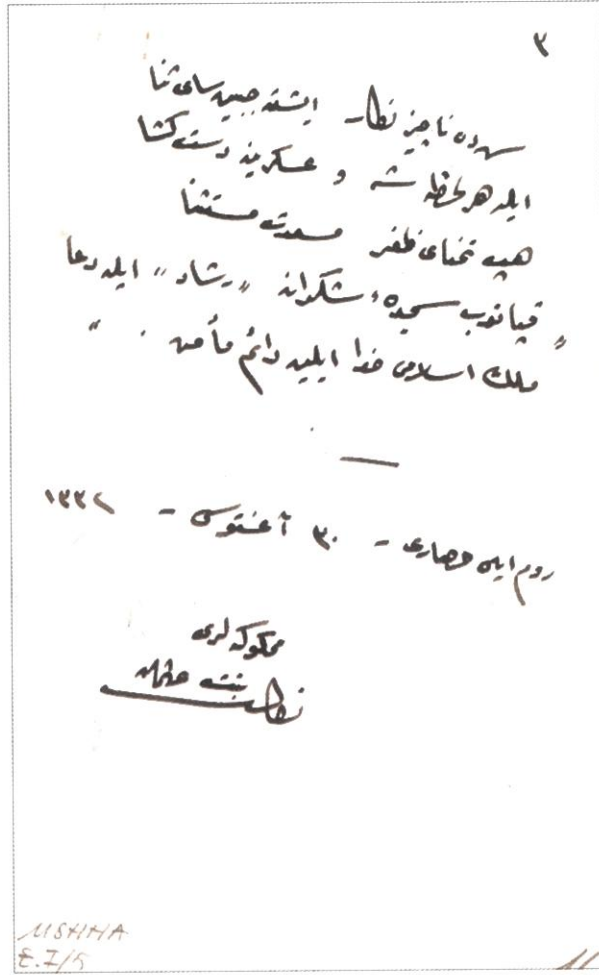 ٣
ناچیز نگار ایشته جبین سای ثنا
ایلر هر لحظه شه و عسکرینه دست کشا
هپ تمنای ظفر مسعدت مستثنا
"قپانوب سجدهٔ شکرانه "رشاد" ایله دعا
ملك اسلامی خدا ایلیه دائم مأمن . "
روم ایلی حصاری - ٣٠ آغستوس - ١٣٣٢
مملوکه لری
نگار بنت عثمان
MSHHA
11